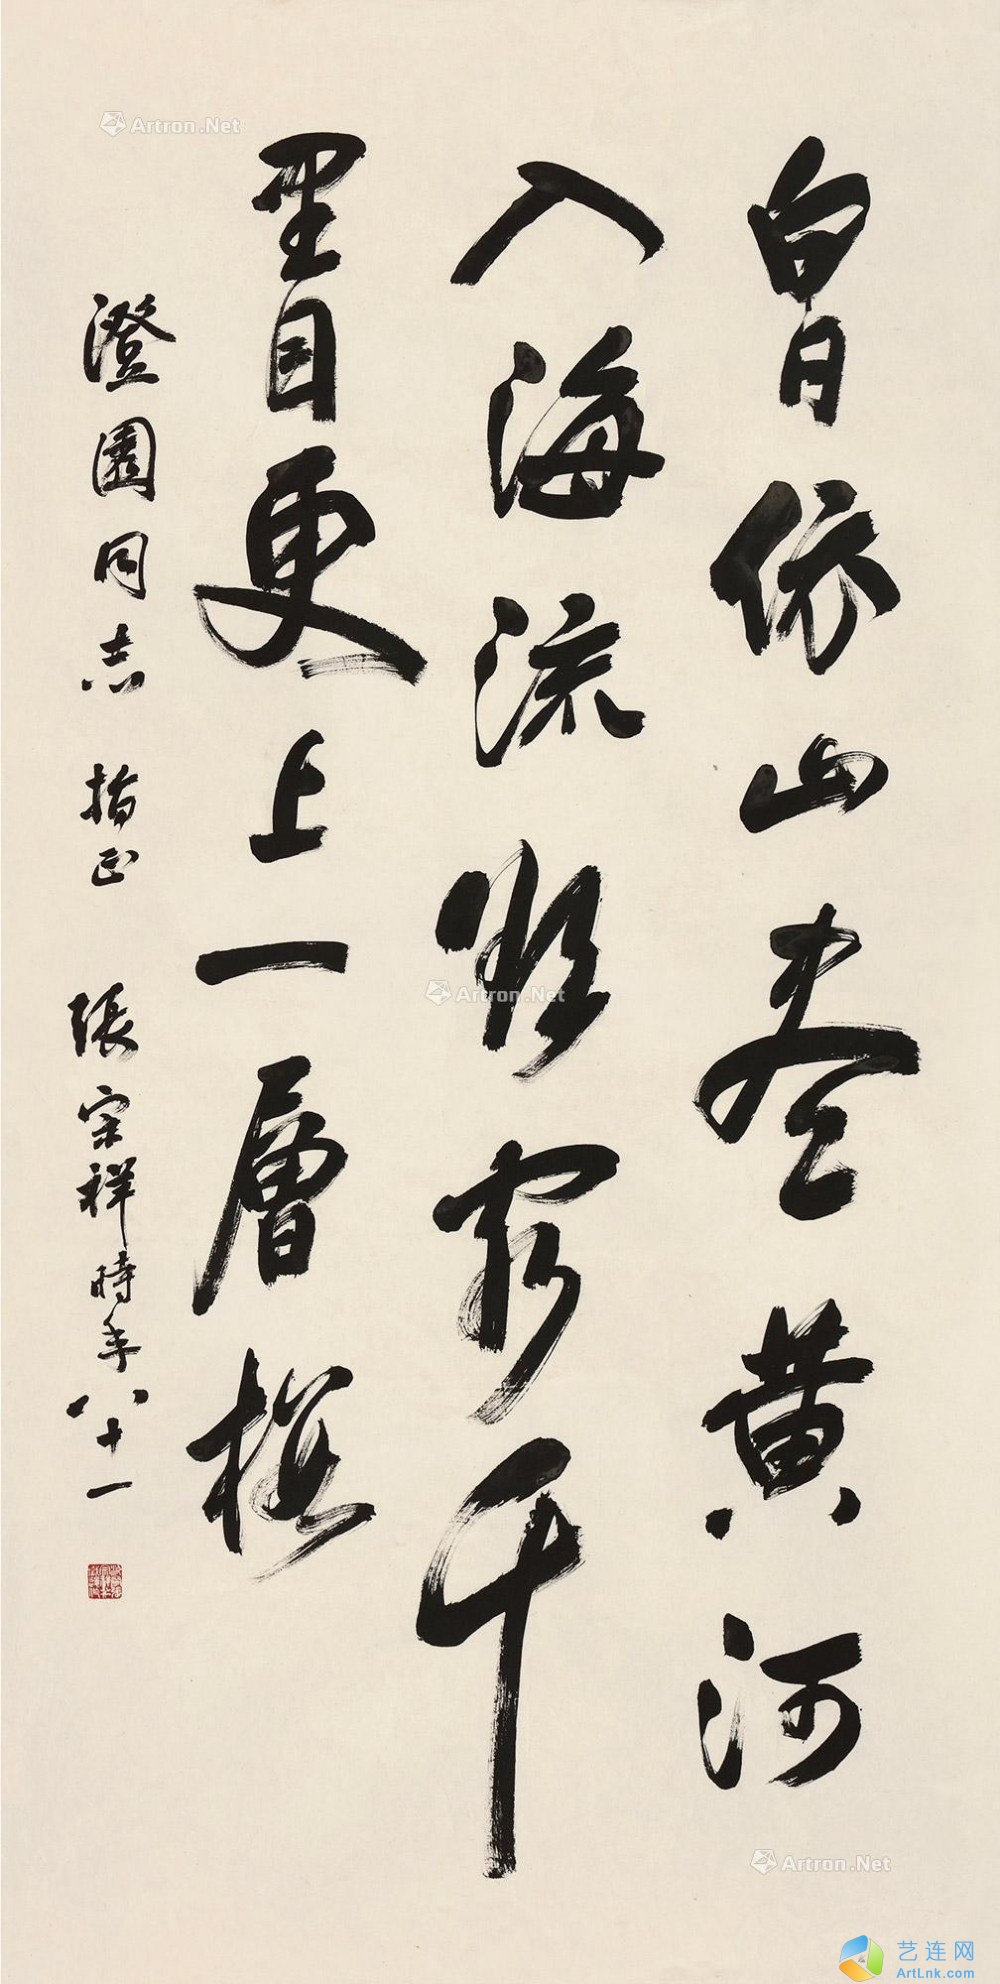 白日依山尽黄河
入海流欲穷千
里目更上一層楼
澄園同志 指正 張宗祥時年八十一
Artron.Net
Artron.Net
Artron.Net
艺连网
ArtLnk.com